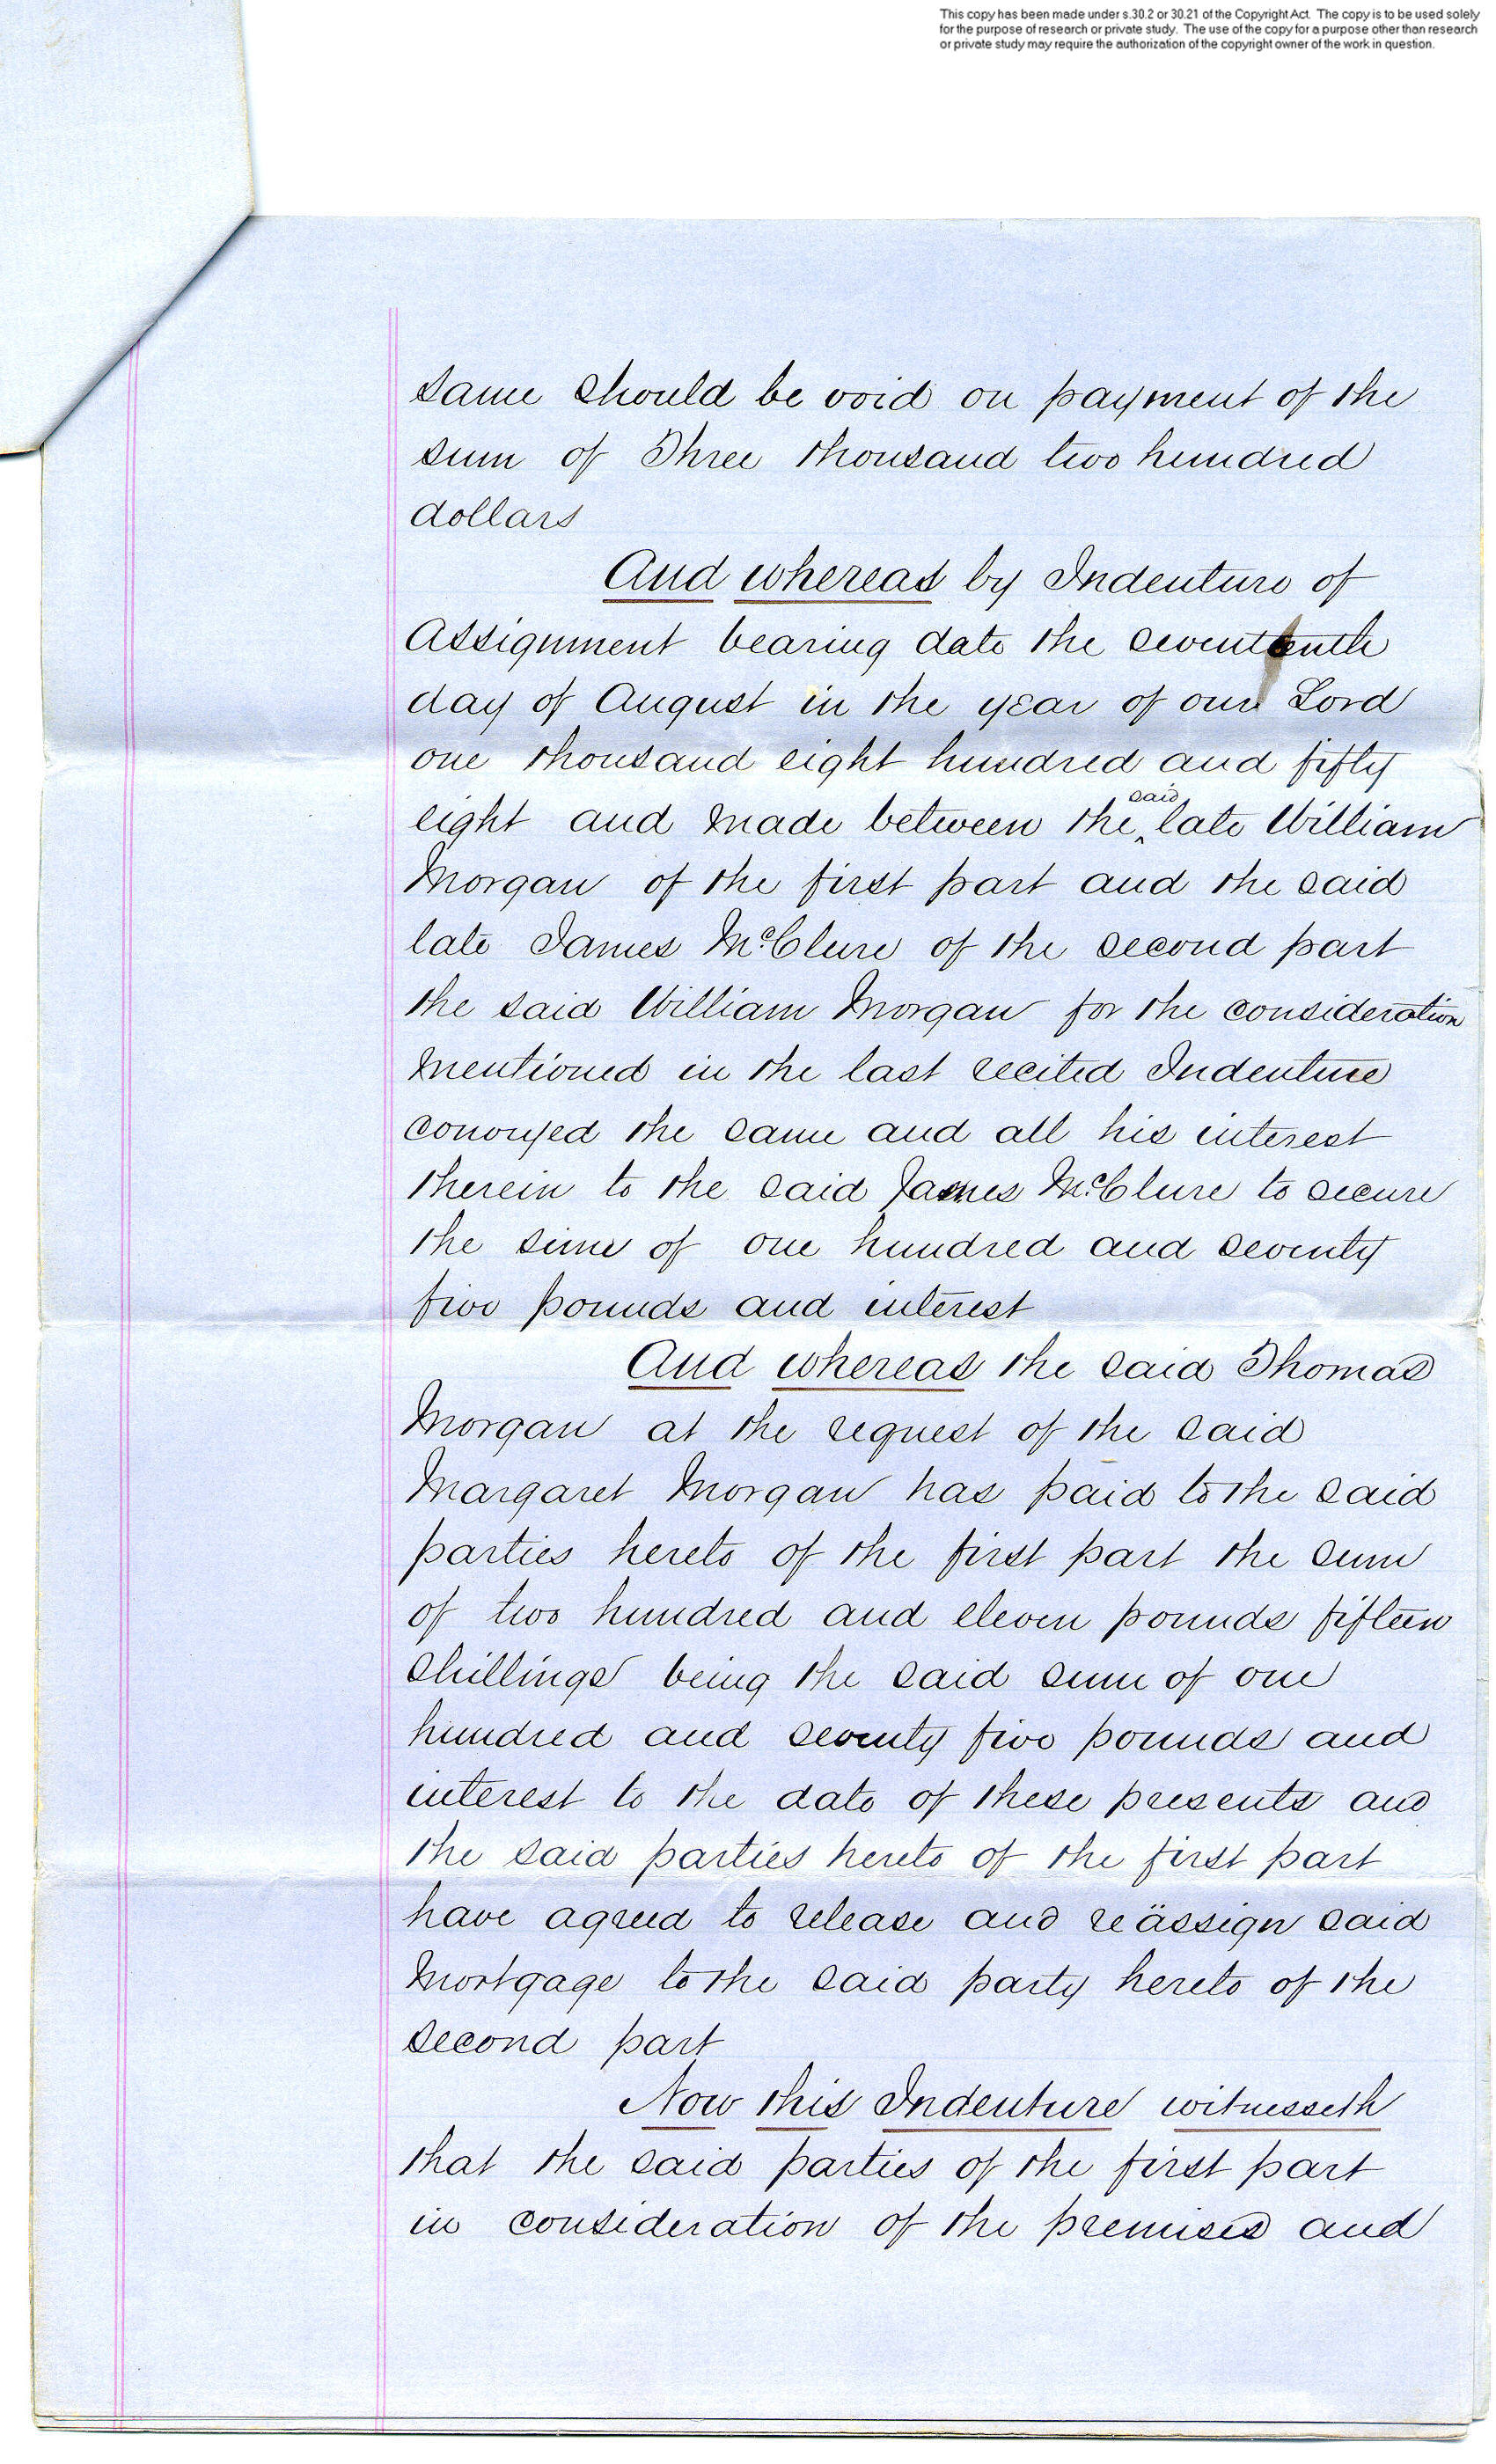 This copy has been made under s.30.2 or 30.21 of the Copyright Act. The copy is to be used solely
for the purpose of research or private study. The use of the copy for a purpose other than research
or private study may require the authorization of the copyright owner of the work in question.
same should be void on payment of the
sum of Three thousand two hundred
dollars
And whereas by Indenture of
Assignment bearing date the seventeenth
day of August in the year of our Lord
one thousand eight hundred and fifty
said
eight and made between the ‸ late William
Morgan of the first part and the said
late James McClure of the second part
the said William Morgan for the consideration
mentioned in the last recited Indenture
conveyed the same and all his interest
therein to the said James McClure to secure
the sum of one hundred and seventy
five pounds and interest
And whereas the said Thomas
Morgan at the request of the said
Margaret Morgan has paid to the said
parties hereto of the first part the sum
of two hundred and eleven pounds fifteen
shillings being the said sum of one
hundred and seventy five pounds and
interest to the date of these presents and
the said parties hereto of the first part
have agreed to release and reässign said
Mortgage to the said party hereto of the
second part
Now this Indenture witnesseth
that the said parties of the first part
in consideration of the premises and